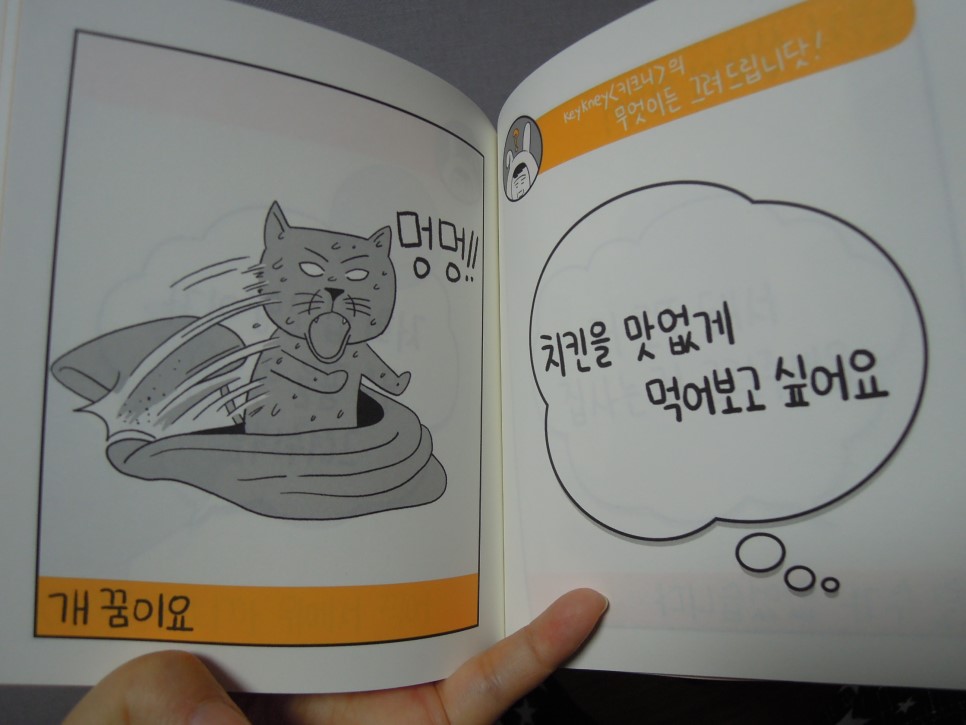 멍멍!!
개 꿈이요
keykney<키크니>의
무엇이든 그려드립니닷!
치킨을 맛없게
먹어보고 싶어요